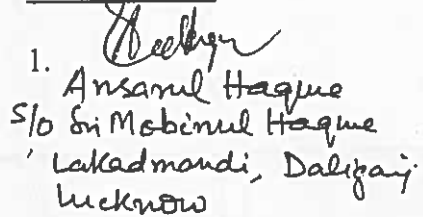 1.
Ansarul Haque
S/o Sri Mobinul Haque
Lakadmandi, Daliganj
Lucknow